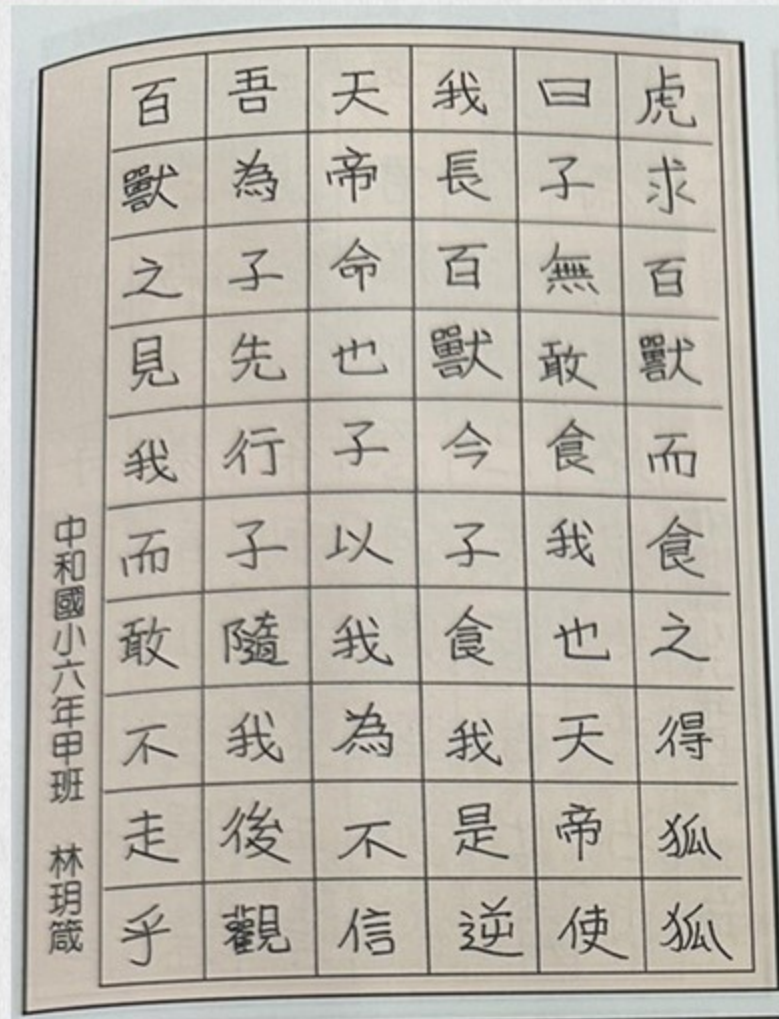 虎求百獸而食之得狐狐
曰子無敢食我也天帝使
我長百獸今子食我是逆
天帝命也子以我為不信
吾為子先行子隨我後觀
百獸之見我而敢不走乎
中和國小六年甲班 林玥箴